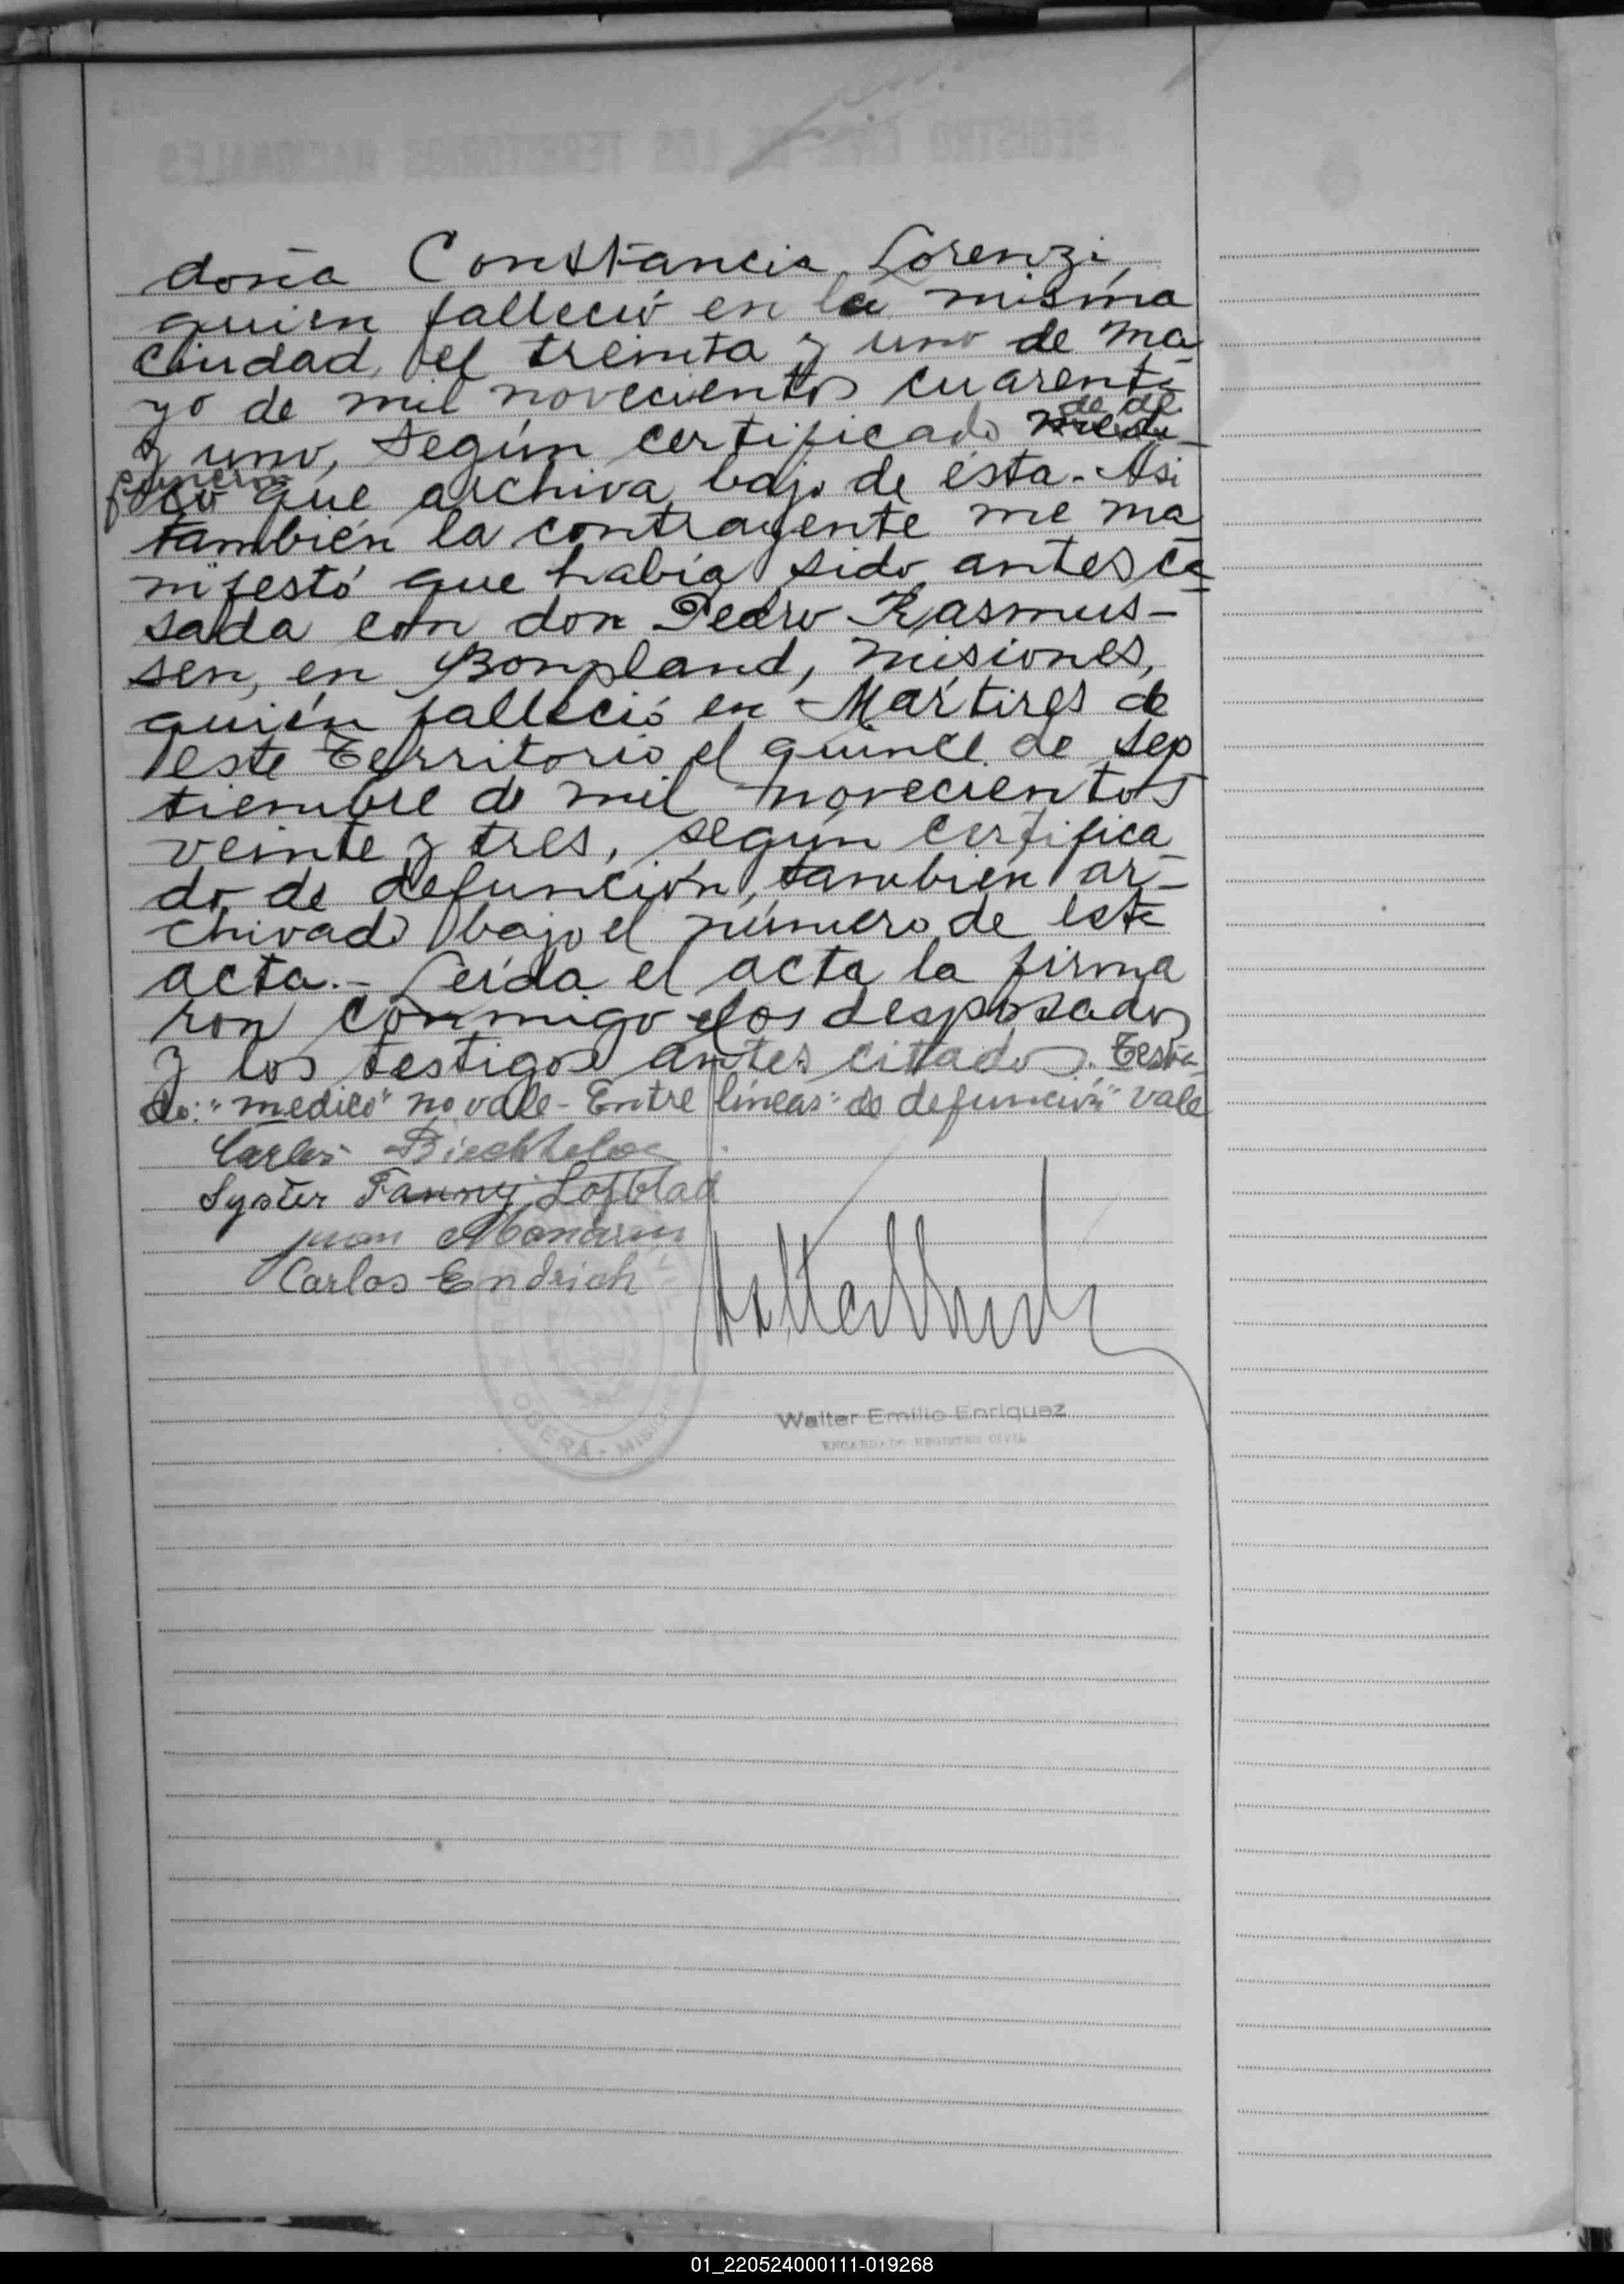 doña Constancia Lorenzi,
quien falleció en la misma
ciudad, el treinta y uno de ma-
yo de mil novecientos cuarenta
de de
y uno, según certificado medi-
función
co que archiva bajo de ésta.- Asi
también la contrayente me ma
nifestó que había sido antes ca-
sada con don Pedro Rasmus-
sen, en Bonpland, Misiones,
quién falleció en Mártires de
este Territorio el quince de sep
tiembre de mil novecientos
veinte y tres, según certifica-
do de defunción, también ar-
chivado bajo el número de este
acta.- Leída el acta la firma
ron conmigo los desposados
y los testigos antes citados. Testa-
do: "medico" no vale - Entre líneas: "de defunción" vale
Carlos
Syster Fanny Lofblad
Juan
Carlos Endrich
OBERÁ - MISIONES
Walter Emilio Enriquez
ENCARGADO REGISTRO CIVIL
01_220524000111-019268